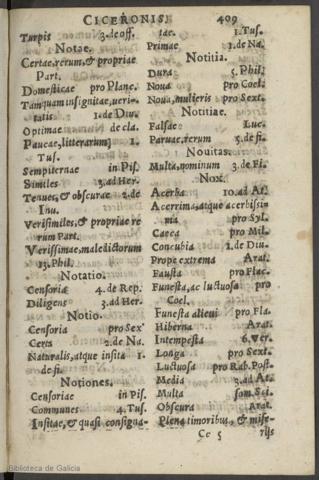 CICERONIS. 409
Turpis 3.de off.
Notae.
Certae, rerum, & propriae
Part.
Domesticae pro Planc.
Tamquam insignitae, veri-
tatis 1.de Diu.
Optimae de cla.
Paucae, litterarum; 1.
Tus.
Sempiternae in Pis.
Similes 3.ad Her.
Tenues, & obscurae 2.de
Inu.
Verisimiles, & propriae re
rum Part.
Verissimae, maledictorum
13.Phil.
Notatio.
Censoria 4.de Rep.
Diligens 3.ad Her.
Notio.
Censoria pro Sex
Certa 2.de Na.
Naturalis, atque insita 1.
de fi.
Notiones.
Censoriae in Pis.
Communes 4.Tus.
Insitae, & quasi consigna-
tae. 1.Tus.
Primae 1.de Na.
Notitia.
Dura 5.Phil.
Noua pro Coel.
Noua, mulieris pro Sext.
Notitiae.
Falsae Luc.
Paruae, rerum 5.de fi.
Nouitas.
Multa, nominum 3.de Fi.
Nox.
Acerba 10.ad At.
Acerrima, atque acerbissi
ma pro Syl.
Caeca pro Mil.
Concubia 1.de Diu.
Prope extrema Arat.
Fausta pro Flac.
Funesta, ac luctuosa pro
Coel.
Funesta alicui pro Fla.
Hiberna Arat.
Intempesta 6.Ver.
Longa pro Sext.
Luctuosa pro Rab. Post.
Media 3.ad At.
Multa som.Sci.
Obscura Arat.
Plena timoribus, & mise-
Cc 5 riis
Biblioteca de Galicia